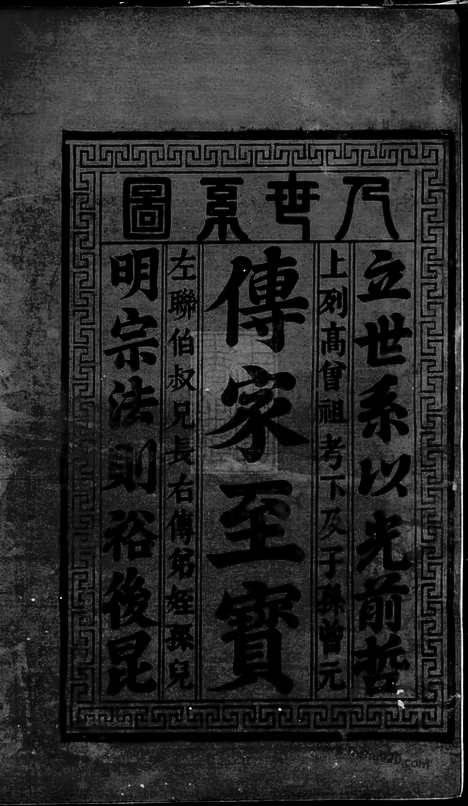 人世系圖
立世系以光前哲
上列高曾祖考下及子孫曾元
傳家至寶
左聯伯叔兄長右傳弟姪孫兒
明宗法則裕後昆